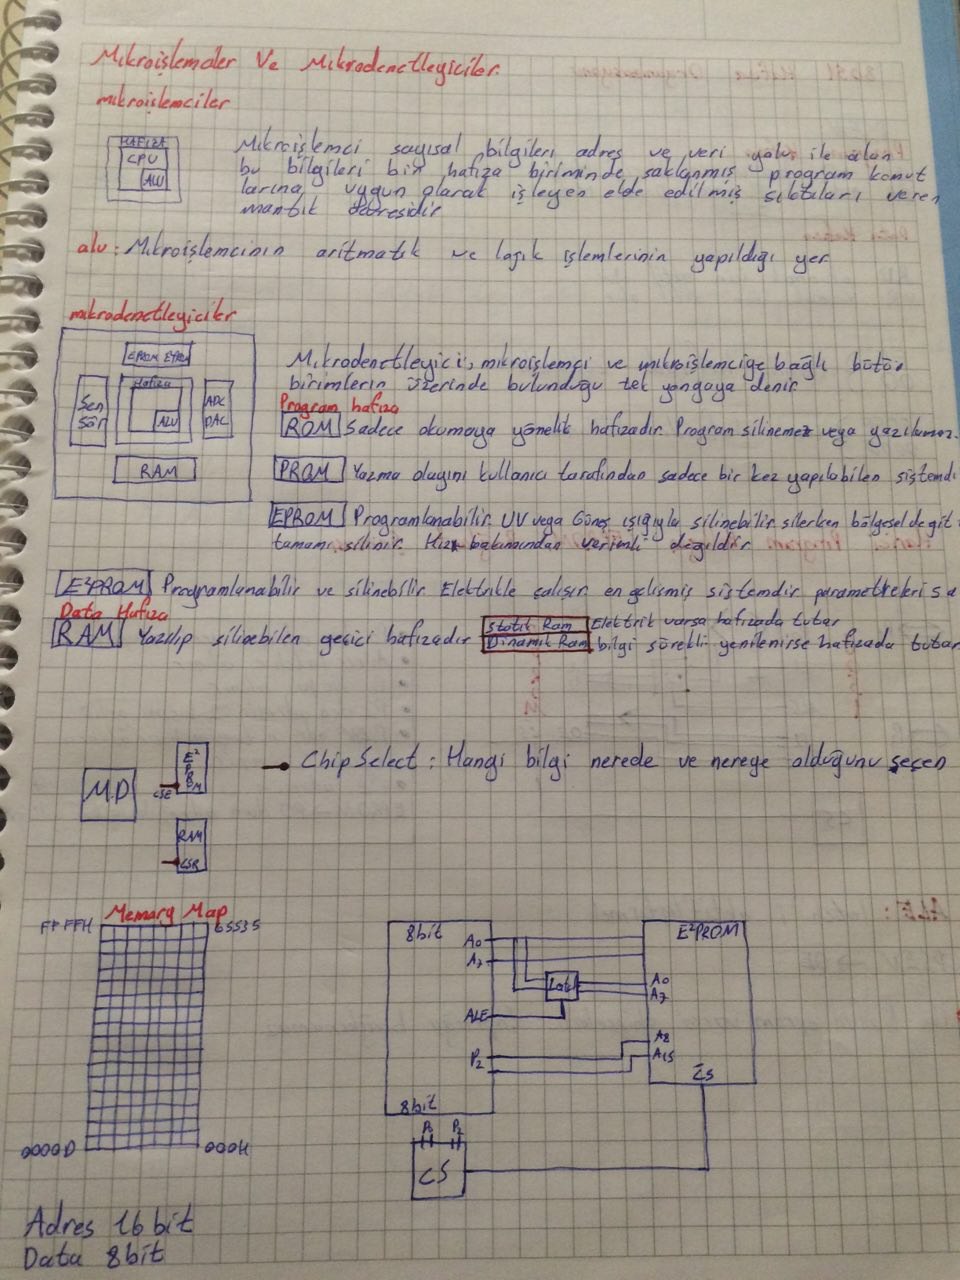 Mikroişlemciler Ve Mikrodenetleyiciler.
mikroişlemciler
HAFIZA
CPU
ALU
Mikroişlemci sayısal bilgileri adres ve veri yolu ile alan
bu bilgileri bir hafıza biriminde saklanmış program komut
larına uygun olarak işleyen elde edilmiş sıktıları veren
mantık devresidir
alu: Mikroişlemcinin aritmatik ve lojik işlemlerinin yapıldığı yer
mikrodenetleyiciler
EPROM
Hafıza
Sen
sör
ALU
ADC
DAC
RAM
Mikrodenetleyici, mikroişlemci ve mikroişlemciye bağlı bütün
birimlerin üzerinde bulunduğu tek yongaya denir
Program hafıza
ROM Sadece okumaya yönelik hafızadır Program silinemez veya yazılamaz.
PROM Yazma olayını kullanıcı tarafından sadece bir kez yapılabilen sistemdi
EPROM Programlanabilir UV veya Güneş ışığıyla silinebilir silerken bölgesel değil
tamamı silinir. Hız bakımından verimli değildir
E²PROM Programlanabilir ve silinebilir Elektrikle çalışır en gelişmiş sistemdir parametreleri sa
Data Hafıza
RAM Yazılıp silinebilen geçici hafızadır
Statik Ram Elektrik varsa hafızada tutar
Dinamik Ram bilgi sürekli yenilenirse hafızada tutar
M.D
CSE
E²PROM
RAM
CSR
Chip Select: Hangi bilgi nerede ve nereye olduğunu seçen
Memary Map
FFFFH
65535
0000D
000H
8bit
A0
A7
ALE
P2
8bit
Latch
E²PROM
A0
A7
A8
A15
CS
P2
CS
Adres 16 bit
Data 8bit